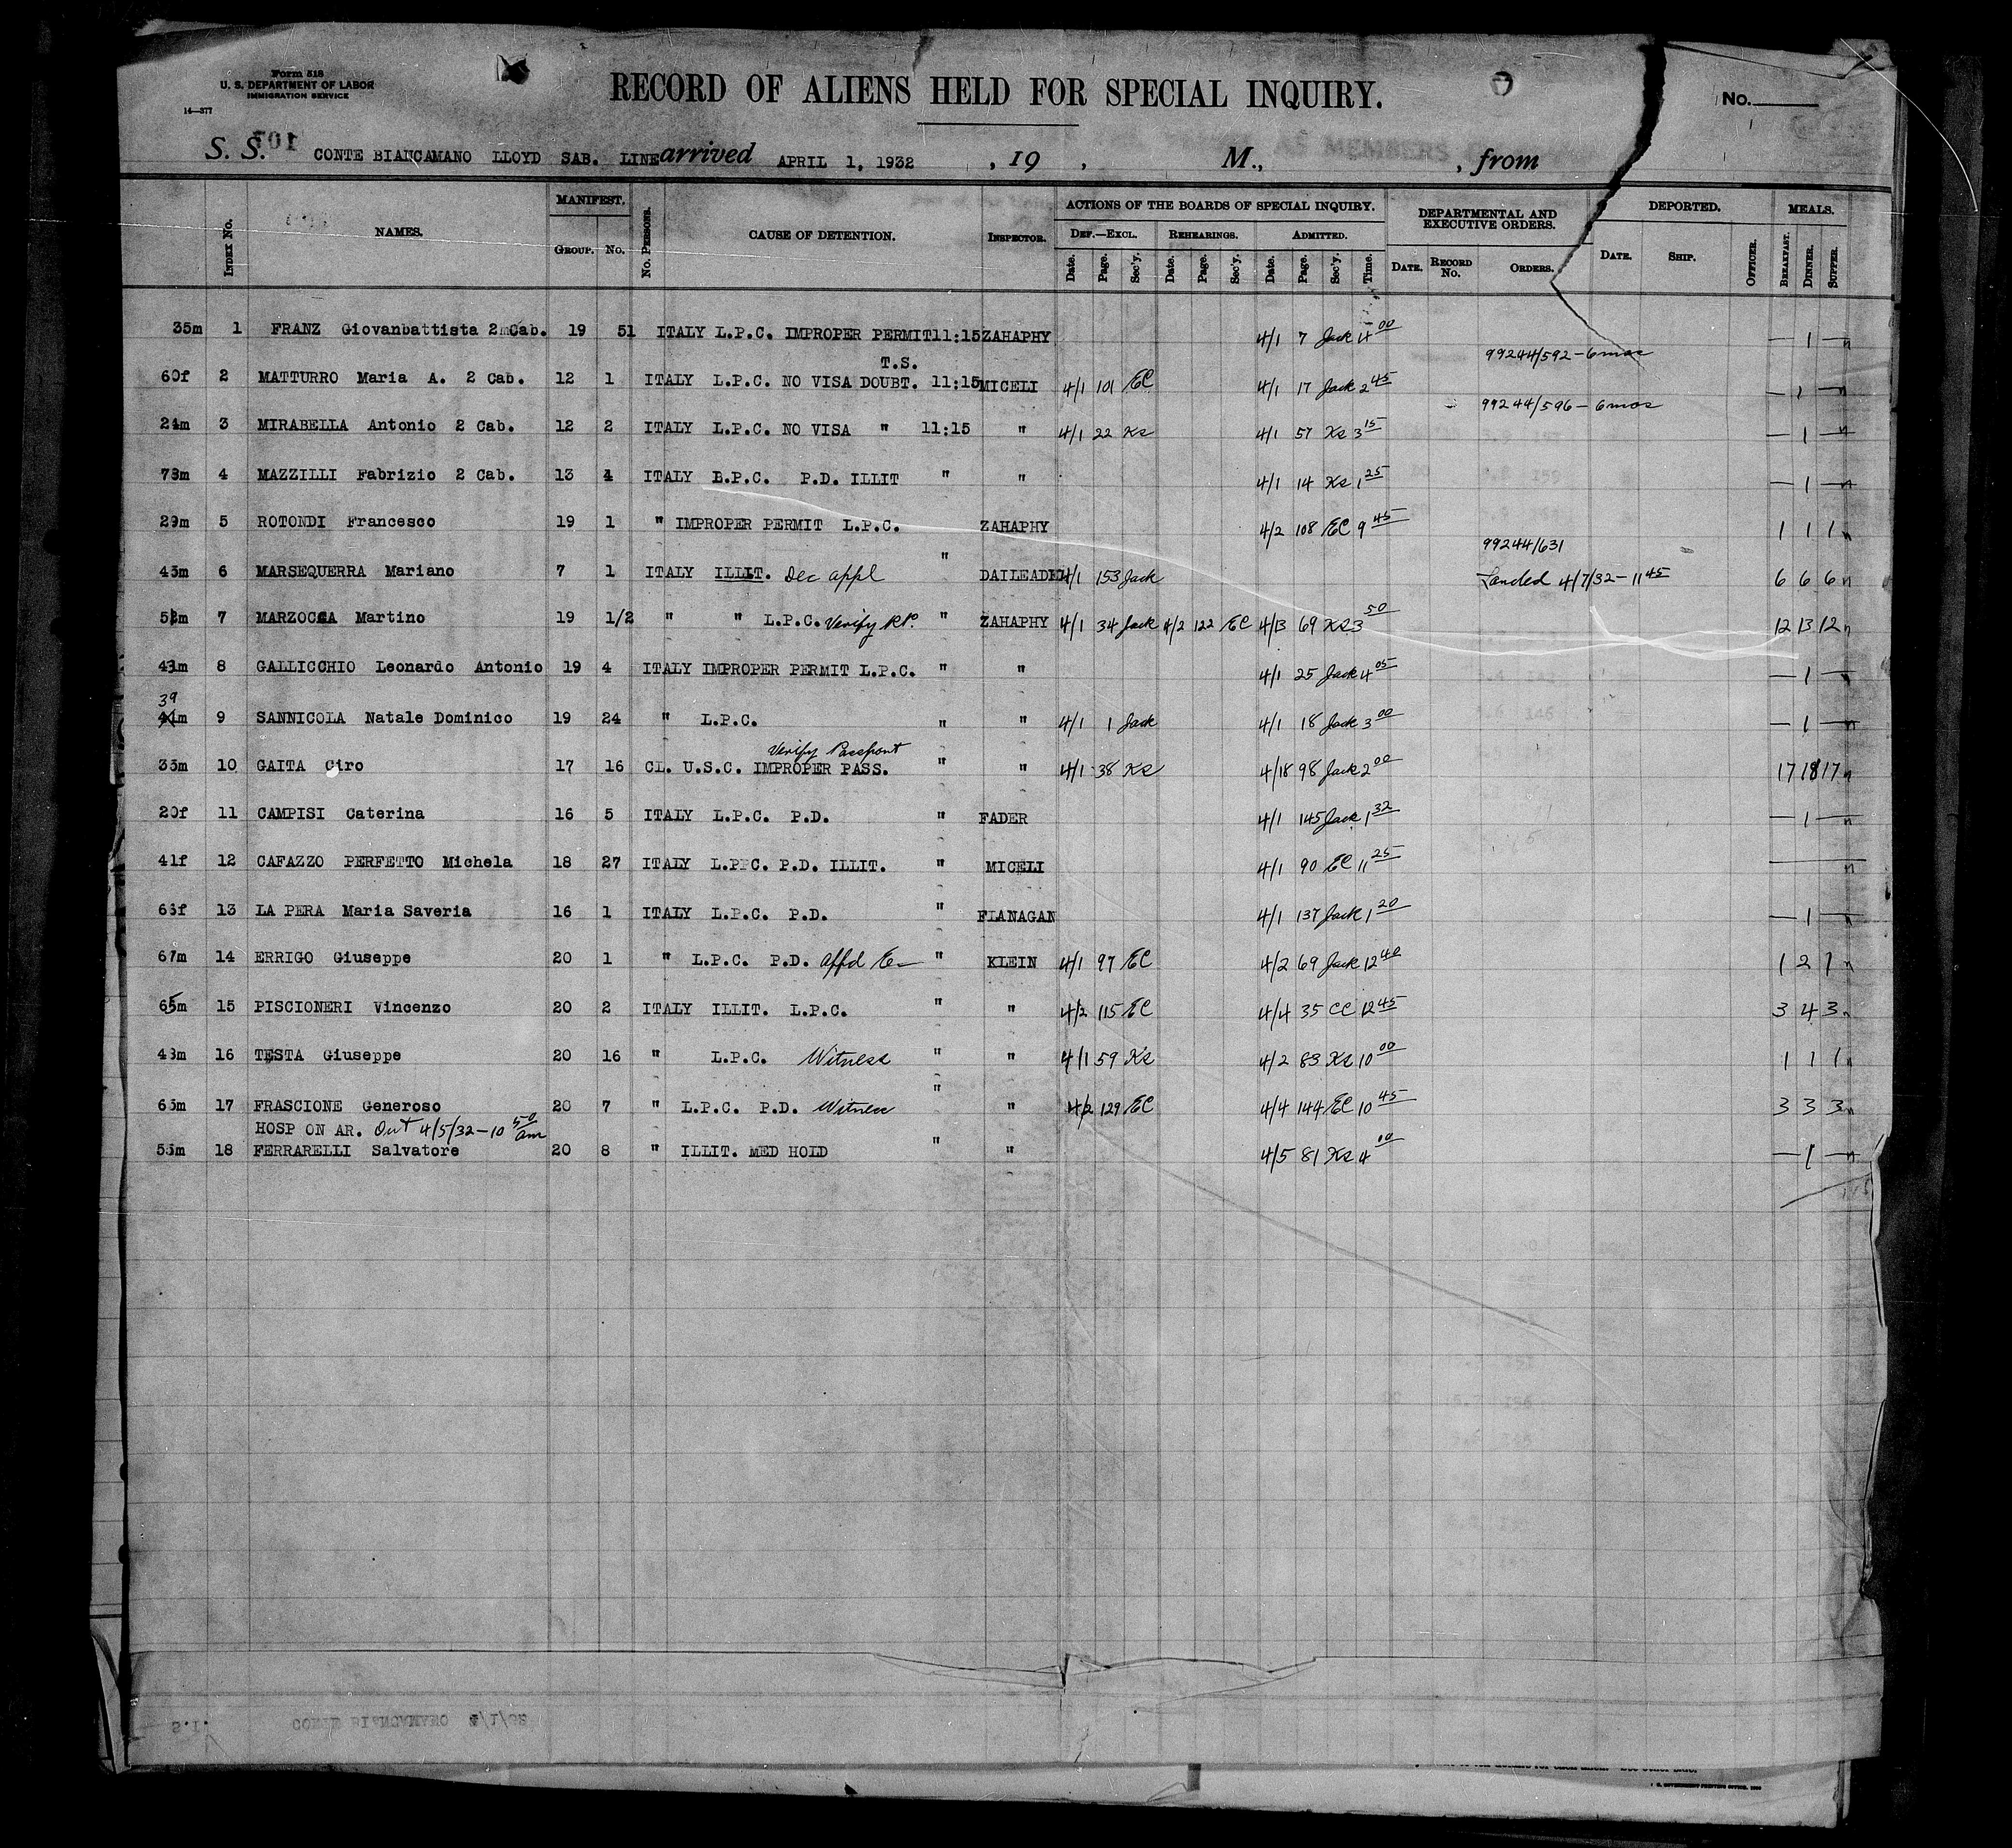 Form 518
U. S. DEPARTMENT OF LABOR
IMMIGRATION SERVICE
14—377
RECORD OF ALIENS HELD FOR SPECIAL INQUIRY.
No.
S. S. CONTE BIANCAMANO LLOYD SAB. LINE arrived APRIL 1, 1932 , 19 , M., , from
AS MEMBERS
INDEX No. NAMES. MANIFEST. GROUP. No. No. PERSONS. CAUSE OF DETENTION. INSPECTOR. ACTIONS OF THE BOARDS OF SPECIAL INQUIRY. DEPARTMENTAL AND EXECUTIVE ORDERS. DEPORTED. MEALS.
DEF.—EXCL. REHEARINGS. ADMITTED.
Date. Page. Sec'y. Date. Page. Sec'y. Date. Page. Sec'y. Time. DATE. RECORD No. ORDERS. DATE. SHIP. OFFICER. BREAKFAST. DINNER. SUPPER.
35m 1 FRANZ Giovanbattista 2mCab. 19 51 ITALY L.P.C. IMPROPER PERMIT 11:15 ZAHAPHY 4/1 7 Jack 4 00 — 1 —
T.S. 99244/592 - 6 mos
60f 2 MATTURRO Maria A. 2 Cab. 12 1 ITALY L.P.C. NO VISA DOUBT. 11:15 MICELI 4/1 101 EC 4/1 17 Jack 2 45 — 1 —
99244/596 - 6 mos
24m 3 MIRABELLA Antonio 2 Cab. 12 2 ITALY L.P.C. NO VISA " 11:15 " 4/1 22 Ks 4/1 57 Ks 3 15 — 1 —
73m 4 MAZZILLI Fabrizio 2 Cab. 13 4 ITALY L.P.C. P.D. ILLIT " " 4/1 14 Ks 1 25 — 1 —
29m 5 ROTONDI Francesco 19 1 " IMPROPER PERMIT L.P.C. " ZAHAPHY 4/2 108 EC 9 45 1 1 1
99244/631
43m 6 MARSEQUERRA Mariano 7 1 ITALY ILLIT. Dec appl DAILEADER 4/1 153 Jack Landed 4/7/32 - 11 45 6 6 6
7 MARZOCCA Martino 19 1/2 " " L.P.C. Verify RP. " ZAHAPHY 4/1 34 Jack 4/2 122 EC 4/13 69 Ks 3 50 12 13 12
8 GALLICCHIO Leonardo Antonio 19 4 ITALY IMPROPER PERMIT L.P.C. " " 4/1 25 Jack 4 05 — 1 —
39
41m 9 SANNICOLA Natale Dominico 19 24 " L.P.C. " " 4/1 1 Jack 4/1 18 Jack 3 00 — 1 —
Verify Passport
33m 10 GAITA Ciro 17 16 CL. U.S.C. IMPROPER PASS. " " 4/1 38 Ks 4/18 98 Jack 2 00 17 18 17
20f 11 CAMPISI Caterina 16 5 ITALY L.P.C. P.D. " FADER 4/1 145 Jack 1 32 — 1 —
41f 12 CAFAZZO PERFETTO Michela 18 27 ITALY L.PPC. P.D. ILLIT. " MICELI 4/1 90 EC 11 25
63f 13 LA PERA Maria Saveria 16 1 ITALY L.P.C. P.D. " FLANAGAN 4/1 137 Jack 1 20 — 1 —
67m 14 ERRIGO Giuseppe 20 1 " L.P.C. P.D. affd " KLEIN 4/1 97 EC 4/2 69 Jack 12 40 1 2 1
65m 15 PISCIONERI Vincenzo 20 2 ITALY ILLIT. L.P.C. " " 4/2 115 EC 4/4 35 CC 12 45 3 4 3
43m 16 TESTA Giuseppe 20 16 " L.P.C. Witness " " 4/1 59 Ks 4/2 83 Ks 10 00 1 1 1
63m 17 FRASCIONE Generoso 20 7 " L.P.C. P.D. Witness " " 4/2 129 EC 4/4 144 EC 10 45 3 3 3
HOSP ON AR. Out 4/5/32 - 10 50 am
55m 18 FERRARELLI Salvatore 20 8 " ILLIT. MED HOLD " " 4/5 81 Ks 4 00 — 1 —
S.I. CONTE BIANCAMANO 4/1/32